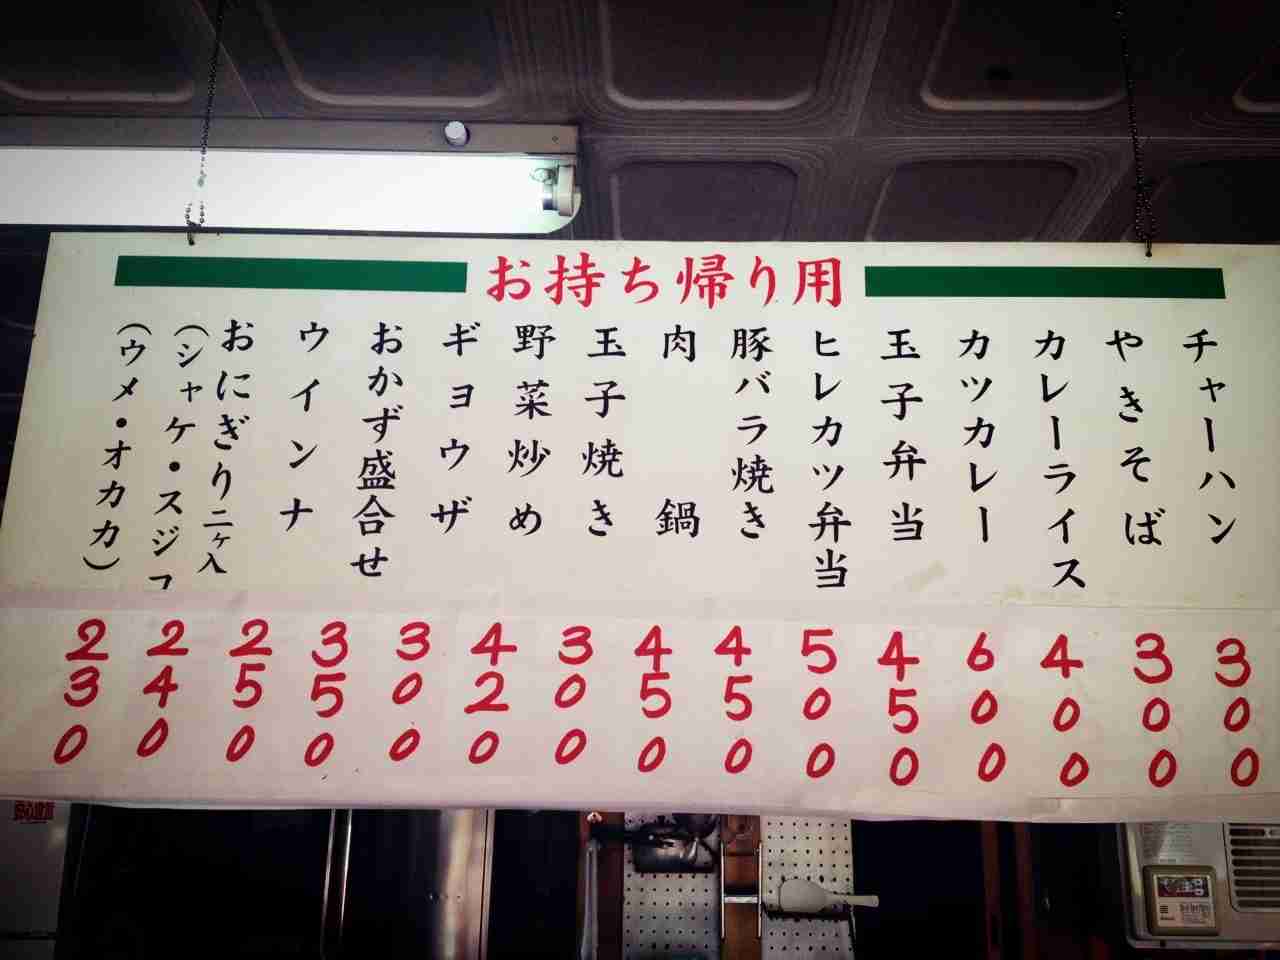 お持ち帰り用
チャーハン
やきそば
カレーライス
カツカレー
玉子弁当
ヒレカツ弁当
豚バラ焼き
肉鍋
玉子焼き
野菜炒め
ギョウザ
おかず盛合せ
ウインナ
おにぎり二ヶ入
(シャケ・スジコ
(ウメ・オカカ)
300
300
400
600
450
500
450
450
300
420
300
350
250
240
230